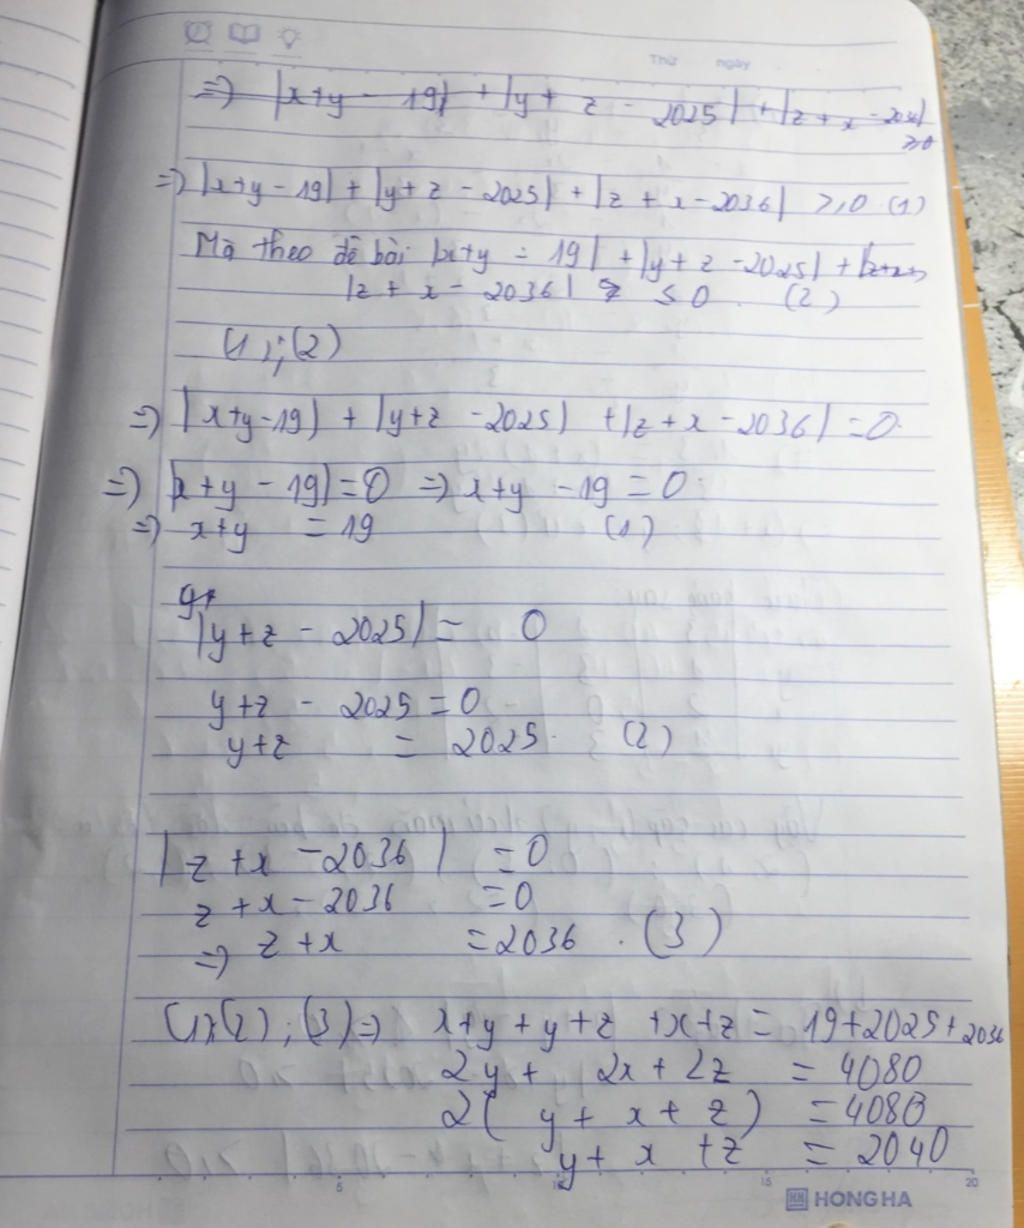 Thứ ngày
=> |x+y - 19| + |y + z - 2025| + |z + x - 2036|
≥0
=> |x+y - 19| + |y + z - 2025| + |z + x - 2036| ≥0 (1)
Mà theo đề bài |x+y - 19| + |y + z - 2025| + |z+x
|z + x - 2036| ≤ 0. (2)
(1);(2)
=> |x+y-19| + |y+z - 2025| + |z + x - 2036| = 0.
=> |x + y - 19| = 0 => x+y - 19 = 0
=> x+y = 19 (1)
|y+z - 2025| = 0
y+z - 2025 = 0
y+z = 2025. (2)
|z + x - 2036| = 0
z + x - 2036 = 0
=> z + x = 2036. (3)
(1);(2);(3) => x+y + y+z + x+z = 19+2025+2036
2y + 2x + 2z = 4080
2( y + x + z) = 4080
y + x + z = 2040
5 10 15 20
HH HONG HA